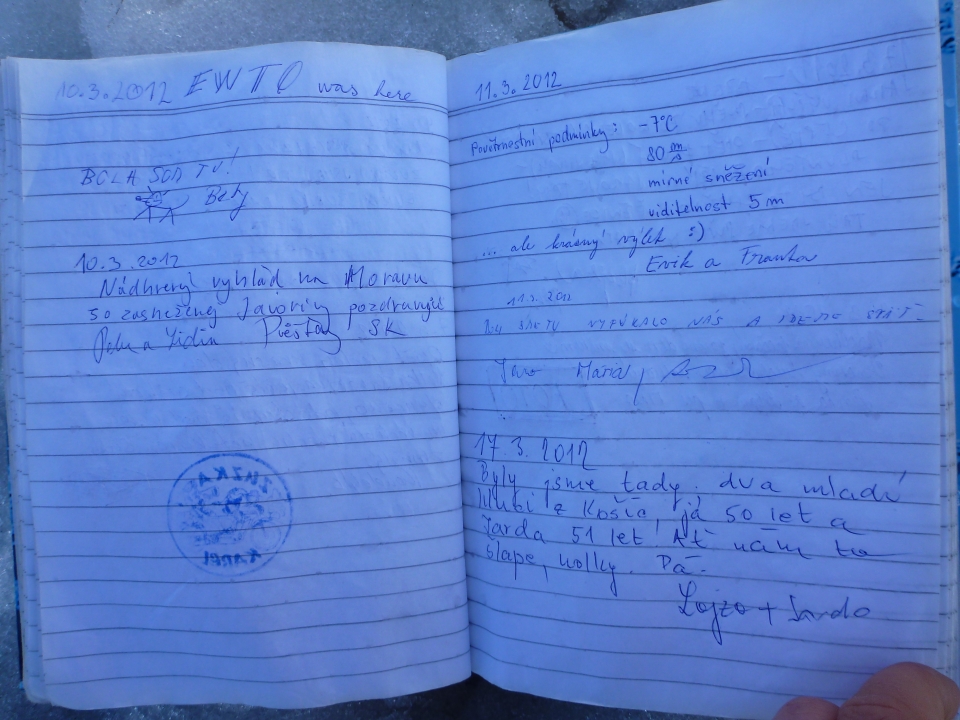 10.3.2012 EWTO was here
BOLA SOM TU!
Bety
10.3.2012
Nádherný vyhlad na Moravu
so zasneženej Javoriny pozdravujú
a Piešťany SK
ZUZKA
KAREL
11.3.2012
Povětrnostní podmínky: -7°C
80 m/s
mírné sněžení
viditelnost 5 m
... ale krásný výlet :)
Erik a Franka
11.3.2012
VYFÚKALO NÁS A IDEME
Mária,
17.3.2012
Byly jsme tady. dva mladí
hlubi z Košíc, já 50 let a
Jarda 51 let. Ať nám to
slape, holky. Pá.
Lojzo + Jarda